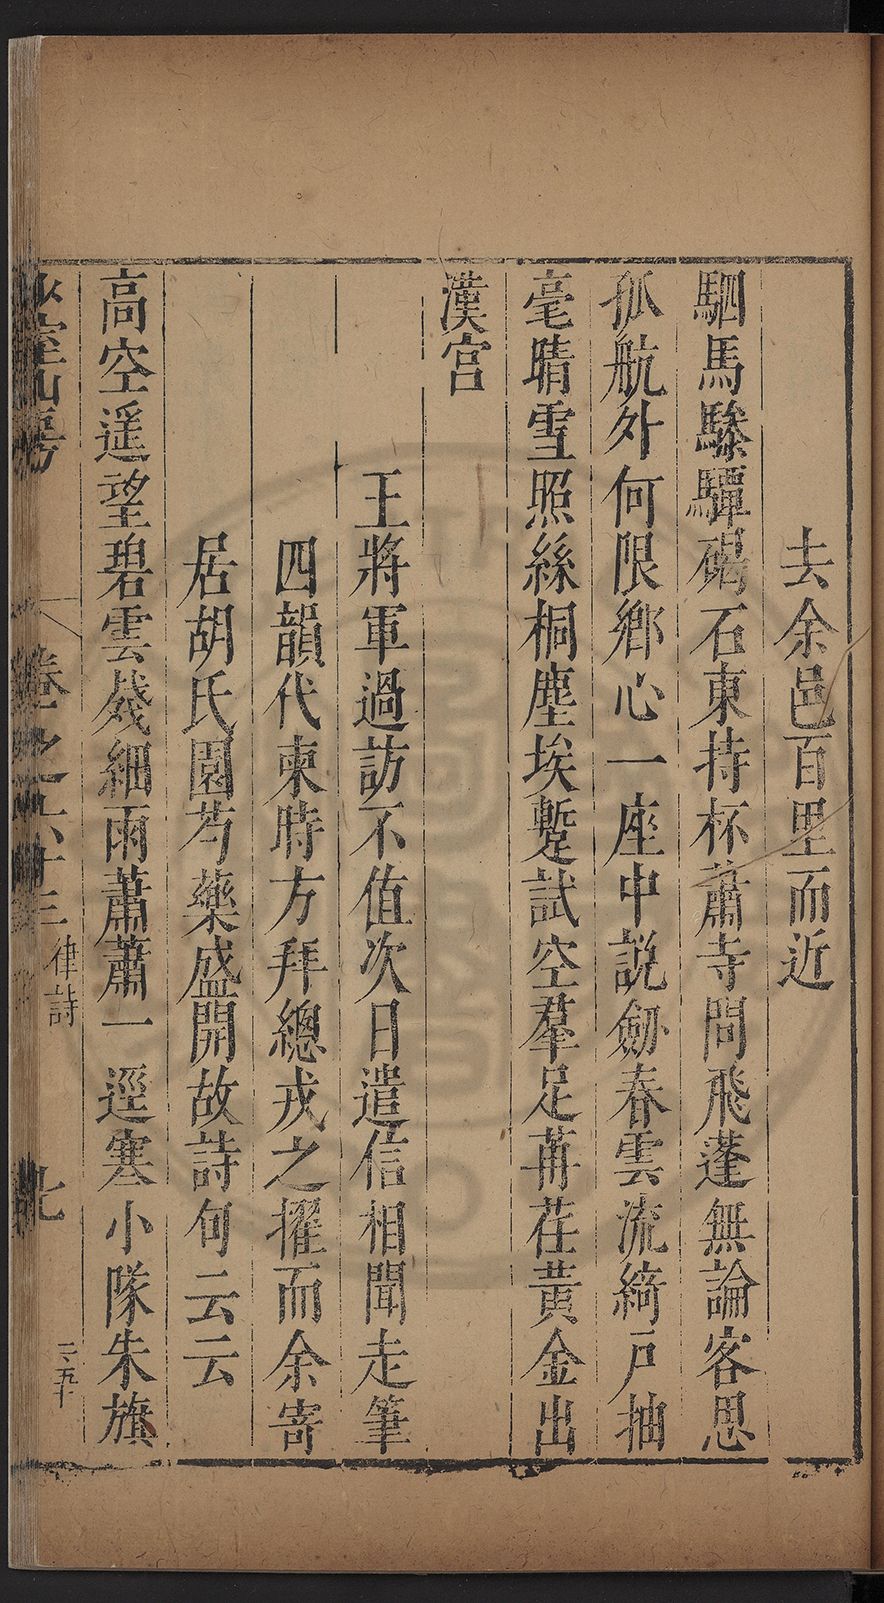 去余邑百里而近
駟馬驂驔碣石東持杯蕭寺問飛蓬無論客思
孤航外何限鄉心一座中說劒春雲流綺戶抽
毫晴雪照絲桐塵埃蹔試空羣足苒荏黃金出
漢宮
王將軍過訪不值次日遣信相聞走筆
四韻代柬時方拜總戎之擢而余寄
居胡氏園芍藥盛開故詩句云云
高空遥望碧雲殘細雨蕭蕭一逕寒小隊朱旗
室山房
卷之六十三
律詩
七
二、五十